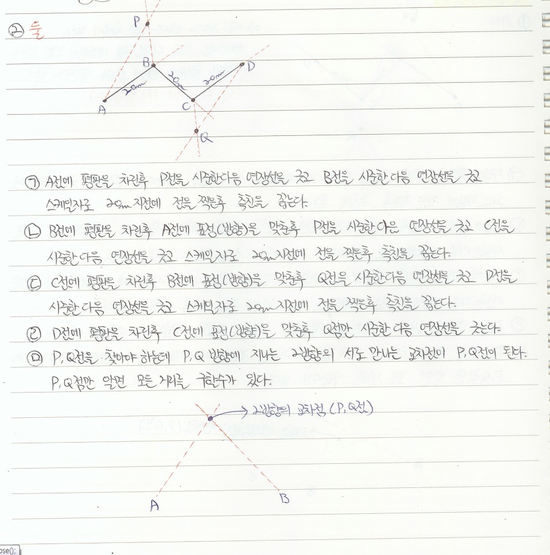 ② 틀
P
B
D
20m
20m
20m
A
C
Q
㉠ A점에 평판을 차린후 P점을 시준한다음 연장선을 긋고 B점을 시준한다음 연장선을 긋고
스케일자로 20m 지점에 점을 찍은후 측침을 꼽는다.
㉡ B점에 평판을 차린후 A점에 표정(방향)을 맞춘후 P점을 시준한 다음 연장선을 긋고 C점을
시준한다음 연장선을 긋고 스케일자로 20m 지점에 점을 찍은후 측침을 꼽는다.
㉢ C점에 평판을 차린후 B점에 표정(방향)을 맞춘후 Q점을 시준한다음 연장선을 긋고 D점을
시준한다음 연장선을 긋고 스케일자로 20m 지점에 점을 찍은후 측침을 꼽는다.
㉣ D점에 평판을 차린후 C점에 표정(방향)을 맞춘후 Q점만 시준한다음 연장선을 긋는다.
㉤ P, Q점을 찾아야 하는데 P, Q 방향에 지나는 2방향의 서로 만나는 교차점이 P, Q점이 된다.
P, Q점만 알면 모든 거리를 구할수가 있다.
2방향의 교차점 (P, Q점)
A
B